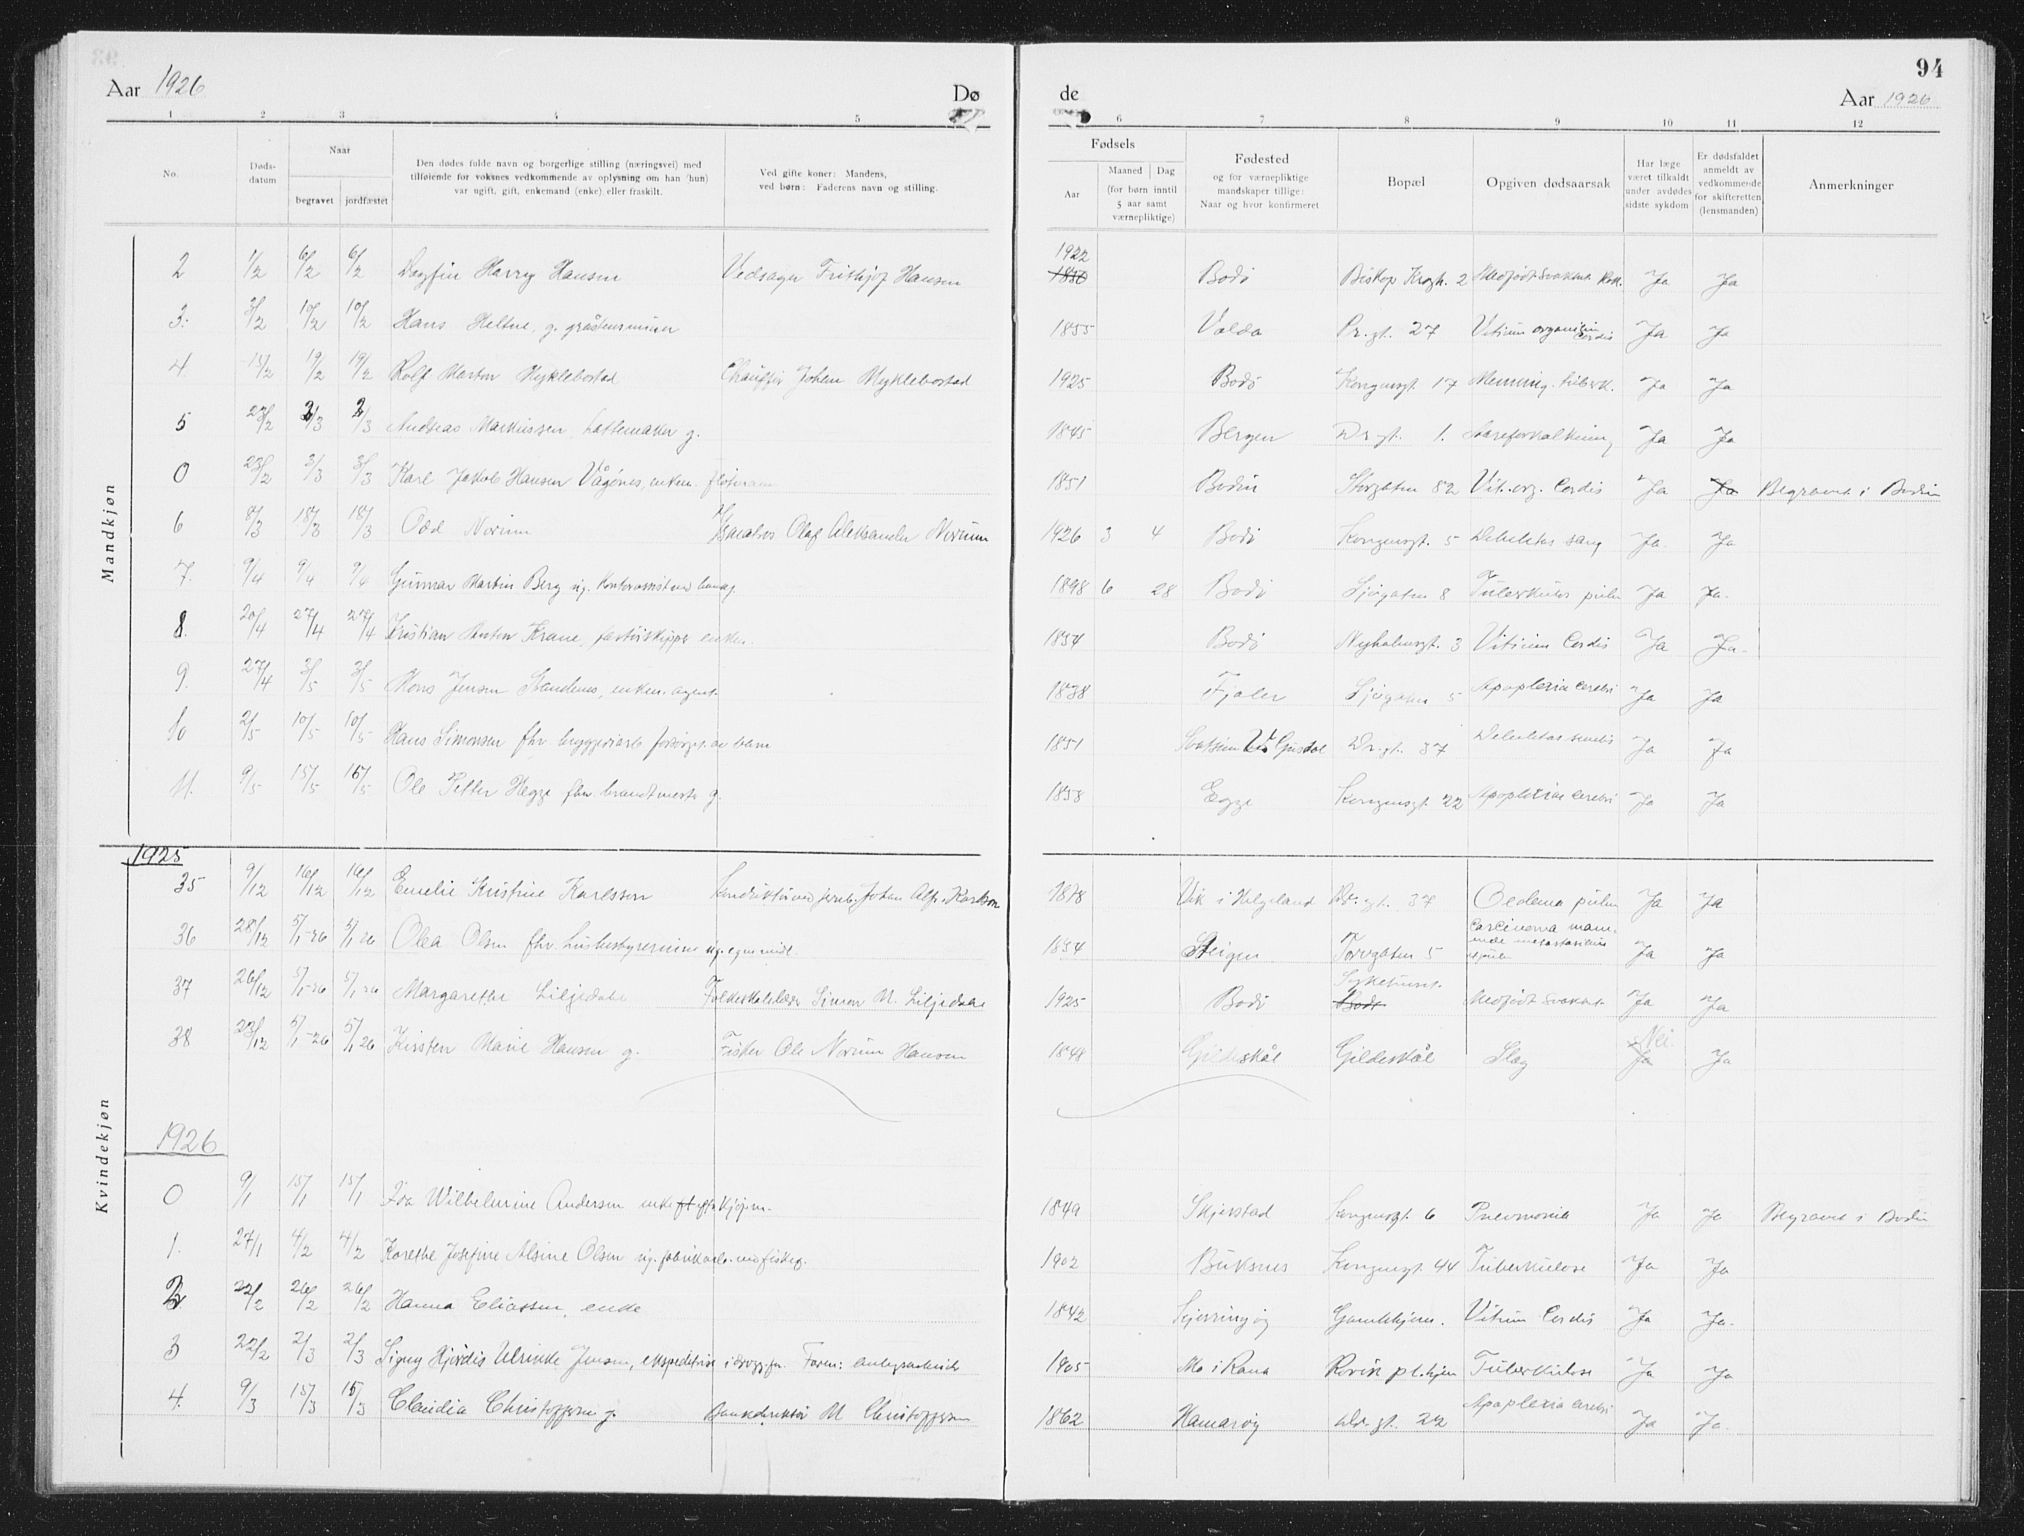 Aar 1926 Dø de Aar 1926 94
1 2 3 4 5 6 7 8 9 10 11 12
No. Døds-datum Naar begravet jordfæstet
Den dødes fulde navn og borgerlige stilling (næringsvei) med
tilføiende for voksnes vedkommende av oplysning om han (hun)
var ugift, gift, enkemand (enke) eller fraskilt.
Ved gifte koner: Mandens,
ved børn: Faderens navn og stilling.
Fødsels
Aar Maaned Dag
(for børn inntil
5 aar samt
værnepliktige)
Fødested
og for værnepliktige
mandskaper tillige:
Naar og hvor konfirmeret
Bopæl
Opgiven dødsaarsak
Har læge
været tilkaldt
under avdødes
sidste sykdom
Er dødsfaldet
anmeldt av
vedkommende
for skifteretten
(lensmanden)
Anmerkninger
Mandkjøn
2 1/2 6/2 6/2 Dagfin Harry Hansen Vedsager Frithjof Hansen 1922 1880 Bodø Biskop Krogh. 2 Medfødt svakhet Ja Ja
3. 3/2 10/2 10/2 Hans Heltne, g. gråstensmurer 1855 Volda Pr.gt. 27 Vitium organicum Cordis Ja Ja
4 13/2 19/2 19/2 Rolf Marton Myklebostad Chauffør Johan Myklebostad 1925 Bodø Kongensgt 17 Mening. tuberk. Ja Ja
5 23/2 2/3 2/3 Andreas Markussen, hattemaker g. 1845 Bergen Dr.gt. 1. Aareforkalkning Ja Ja
0 23/2 3/3 3/3 Karl Jakob Hansen Vågønes, enkem. 1851 Bodin Storgaten 82 Vit. org. Cordis Ja Ja Begravet i Bodin
6 8/3 18/3 18/3 Odd Norum Olaf Aleksander Norum 1926 3 4 Bodø Kongensgt. 5 Debilitas Ja. Ja
7. 9/4 9/4 9/4 Gunnar Martin Berg ug. 1898 6 28 Bodø Sjøgaten 8 Tuberkulos pulm Ja Ja.
8. 20/4 27/4 27/4 Kristian Anton Krane, enkem. 1854 Bodø Nyholmsgt. 3 Vitium Cordis Ja Ja.
9. 27/4 3/5 3/5 Mons Jensen Standenes, enkem. agent 1838 Fjaler Sjøgaten 5 Apoplexia cerebri Ja Ja
10 2/5 10/5 10/5 Hans Simonsen fhv. bryggeriarb. forsørget av barn 1851 Dr.gt. 37 Debilitas senilis Ja Ja
11. 9/5 15/5 15/5 Ole Petter Hegge fhv. brandmester g. 1853 Egge Kongensgt. 22 Apoplexiae cerebri Ja Ja
Kvindekjøn
1925
35 9/12 16/12 16/12 Emelie Kristine Karlsson Johan Alfr. Karlsson 1878 Vik i Helgeland Dr.gt. 37 Oedema pulm Ja Ja
36 28/12 5/1-26 5/1 26 Olea Olsen fhv. ug. egne midl. 1854 Steigen Torvgaten 5 Carcinoma mammae Ja Ja
37 26/12 5/1-26 5/1 26 Margarethe Liljedahl Folkeskolelærer Simon M. Liljedahl 1925 Bodø Sykehuset. Bodø Medfødt svakhet Ja Ja
38 23/12 5/1-26 5/1 26 Kirsten Marie Hansen g. Fisker Ole Norum Hansen 1848 Gildeskål Gildeskål Slag Ja Nei. Ja
1926
0 9/1 15/1 15/1 Wilhelmine Andersen enke 1849 Skjerstad Kongensgt 6 Pnevmonia Ja Ja Begravet i Bodin
1. 27/1 4/2 4/2 Karethe Josefine Alsine Olsen ug. 1902 Buksnes Kongensgt 44 Tuberkulose Ja Ja
2 22/2 26/2 26/2 Hanna Eliassen, enke 1842 Kjerringøy Gamlehjem. Vitium Cordis Ja Ja.
3 22/2 2/3 2/3 Signy Hjørdis Ulrikke Jensen, ekspeditrise Faren: anlegsarbeider 1905 Mo i Rana Rønvik pl.hjem Tuberkulose Ja Ja
4. 9/3 15/3 15/3 Claudia Christoffersen g. Bankdirektør M Christoffersen 1862 Hamarøy 22 Apoplexia cerebri Ja Ja.